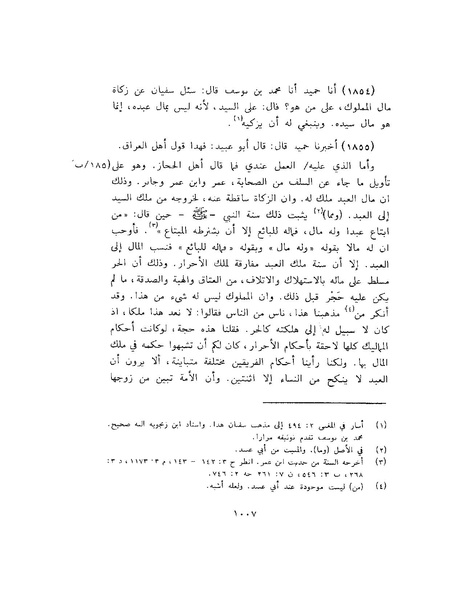 (١٨٥٤) أنا حميد أنا محمد بن يوسف قال: سئل سفيان عن زكاة
مال المملوك، على من هو؟ قال: على السيد، لأنه ليس بمال عبده، إنما
هو مال سيده. وينبغي له أن يزكيه(١).
(١٨٥٥) أخبرنا حميد قال: قال أبو عبيد: فهذا قول أهل العراق.
وأما الذي عليه/ العمل عندي فما قال أهل الحجاز. وهو على (١٨٥/ب)
تأويل ما جاء عن السلف من الصحابة، عمر وابن عمر وجابر. وذلك
ان مال العبد ملك له. وان الزكاة ساقطة عنه، لخروجه من ملك السيد
إلى العبد. (ومما)(٢) يثبت ذلك سنة النبي - ﷺ - حين قال: «من
ابتاع عبدا وله مال، فماله للبائع إلا أن يشترطه المبتاع»(٣). فأوجب
ان له مالا بقوله «وله مال» وبقوله «فماله للبائع» فنسب المال إلى
العبد. إلا أن سنة ملك العبد مفارقة لملك الأحرار. وذلك أن الحر
مسلط على ماله بالاستهلاك والاتلاف، من العتاق والهبة والصدقة، ما لم
يكن عليه حَجْر قبل ذلك. وان المملوك ليس له شيء من هذا. وقد
أنكر من(٤) مذهبنا هذا، ناس من الناس فقالوا: لا نعد هذا ملكا، اذ
كان لا سبيل له إلى هلكته كالحر. فقلنا هذه حجة، لو كانت أحكام
المماليك كلها لاحقة بأحكام الأحرار، كان لكم أن تشبهوا حكمه في ملك
المال بها. ولكنا رأينا أحكام الفريقين مختلفة متباينة، ألا برون أن
العبد لا ينكح من النساء إلا اثنتين. وأن الأمة تبين من زوجها
(١) أشار في المغني ٢: ٤٩٤ إلى مذهب سفيان هذا. واسناد ابن زنجويه اليه صحيح.
محمد بن يوسف تقدم توثيقه مرارا.
(٢) في الأصل (وما). والمثبت من أبي عبيد.
(٣) أخرجه الستة من حديث ابن عمر. انظر خ ٣: ١٤٢ - ١٤٣، م ٣: ١١٧٣، د ٣:
٢٦٨، ت ٣: ٥٤٦، ن ٧: ٢٦١ جه ٢: ٧٤٦.
(٤) (من) ليست موجودة عند أبي عبيد. ولعله أشبه.
١٠٠٧